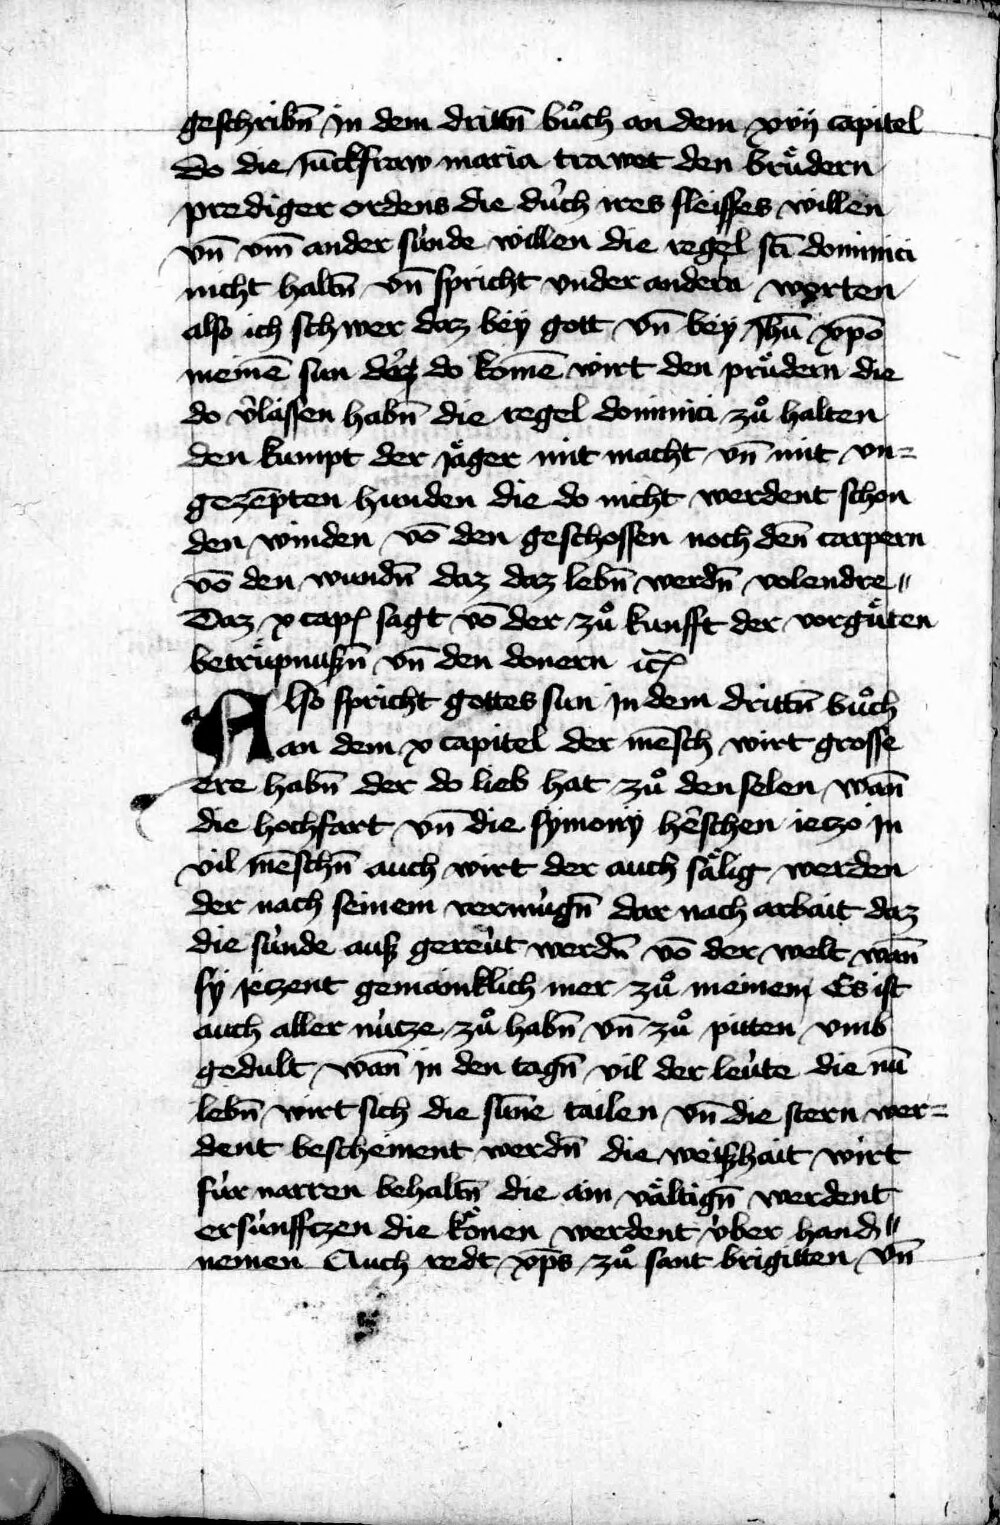 geschribn̄ in dem drittn̄ bůch an dem xvij capitel
Do die Junckfraw maria trawet den brůdern
prediger ordens die dúch ires fleisses willen
vn̄ vm̄ ander sünde willen die regel sc̄i dominici
nicht haltn̄ vn̄ spricht vnder andern worten
also ich schwer daz bey gott vn̄ bey Jhū xp̄o
meinē sun der do komē wirt den průdern die
do v̓lassen habn̄ die regel dominici zů halten
den kumpt der Jäger mit macht vn̄ mit vn=
gezēpten hunden die do nicht werdent schon
den winden vō den geschossen noch den̄ carpern
vō den wundn̄ daz daz lebn̄ werdn̄ volendre〃
Daz x cap̄ sagt vō der zů kunfft der vorgůten
betrůpnußn̄ vn̄ den donern ꝛc̄
Also spricht gottes sun in dem drittn̄ bůch
an dem x capitel der mēsch wirt grosse
ere habn̄ der do lieb hat zů den selen wan̄
die hochfart vn̄ die symony hēschen ieczo in
vil mēschn̄ auch wirt der auch sälig werden
der nach seinem vermügn̄ dar nach arbait daz
die sünde auß gereüt werdn̄ vō der welt wan̄
sy ieczent gemainklich mer zů meinem Es ist
auch aller nücze zů habn̄ vn̄ zů pitten vmb
gedult wan̄ in den tagn̄ vil der leüte die nū
lebn̄ wirt sich die sun̄e tailen vn̄ die stern wer=
dent bescheinent werdn̄ die weißhait wirt
für narren behaltn̄ die ain vältign̄ werdent
ersünfftzen die könen werdent über hand〃
nemen Auch redt xp̄s zů sant brigitten vn̄